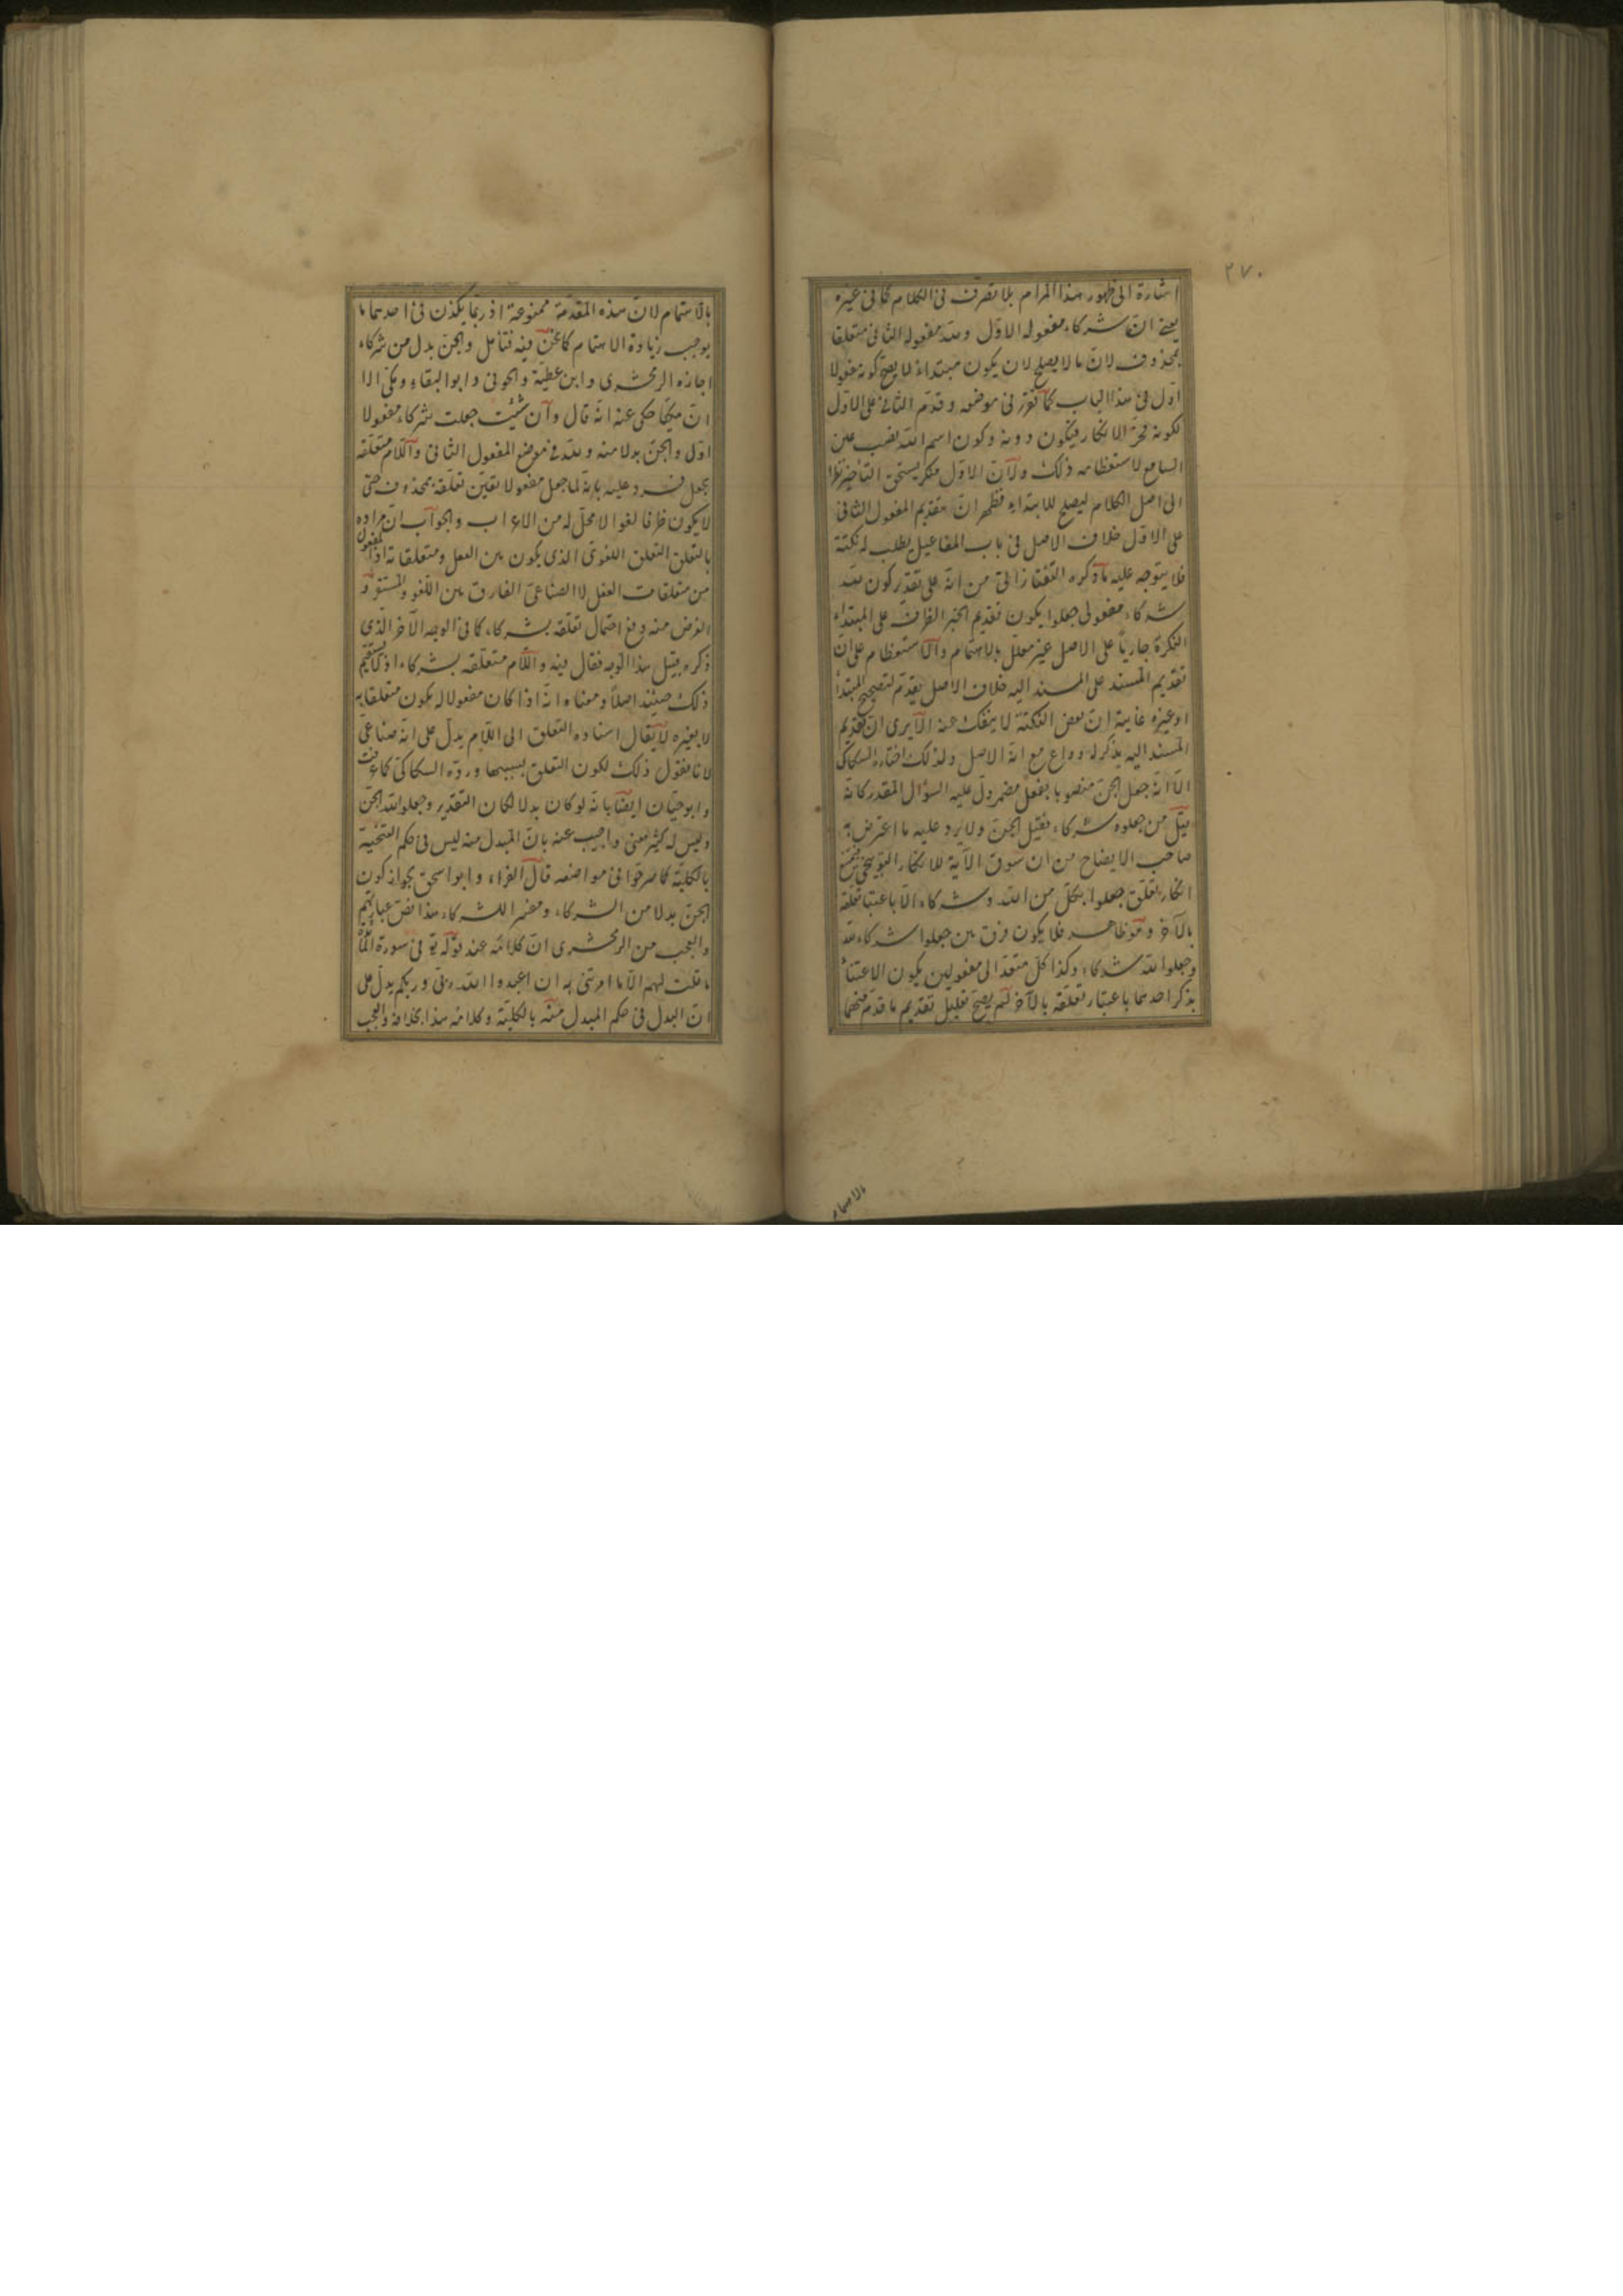 ٢٧٠
اشارة الى ظهور هذا المرام بلا تصرف فى الكلام كما فى غيره
يعنى ان شركاء مفعوله الاول ولله مفعوله الثانى متعلقا
بمحذوف لان ما لا يصلح لان يكون مبتداء لا يصح كونه مفعولا
اول فى هذا الباب كما تقرر فى موضعه وقدم الثانى على الاول
لكونه محز الانكار فيكون دونه وكون اسم الله نصب عين
السامع لاستعظامه ذلك ولان الاول منكر يستحق التأخير نظرا
الى اصل الكلام ليصلح للابتداء فظهر ان تقديم المفعول الثانى
على الاول خلاف الاصل فى باب المفاعيل يطلب له نكتة
فلا يتوجه عليه ما ذكره التفتازانى من انه على تقدير كون لله
شركاء مفعولى جعلوا يكون تقديم الخبر الظرف على المبتداء
النكرة جاريا على الاصل غير معلل بالاهتمام والاستعظام على ان
تقديم المسند على المسند اليه خلاف الاصل يقدم لتصحيح المبتدا
او غيره غايته ان بعض النكتة لا ينفك عنه الا يرى ان تقديم
المسند اليه يذكر له دواع مع انه الاصل ولذلك اختاره السكاكى
الا انه جعل الجن منصوبا بفعل مضمر دل عليه السؤال المقدر كانه
قيل من جعلوه شركاء فقيل الجن ولا يرد عليه ما اعترض به
صاحب الايضاح من ان سوق الآية للانكار التوبيخى فيمتنع
انكار تعلق جعلوا بكل من الله وشركاء الا باعتبار تعلقه
بالآخر وهو ظاهر فلا يكون فرق بين جعلوا شركاء لله
وجعلوا لله شركاء وكذا كل متعد الى مفعولين يكون الاعتناء
بذكر احدهما باعتبار تعلقه بالآخر لم يصح تعليل تقديم ما قدم منهما
بالاهتمام
بالاهتمام لان هذه المقدمة ممنوعة اذ ربما يكون فى احدهما ما
يوجب زيادة الاهتمام كما نحن فيه فتأمل والجن بدل من شركاء
اجازه الزمخشرى وابن عطية والحوفى وابو البقاء ومكى الا
ان مكيا حكى عنه انه قال وان شئت جعلت شركاء مفعولا
اول والجن بدلا منه ولله فى موضع المفعول الثانى واللام متعلقة
بجعل فرد عليه بانه لما جعل مفعولا تعين تعلقه بمحذوف حتى
لا يكون ظرفا لغوا لا محل له من الاعراب والجواب ان مراده
بالتعلق التعلق اللغوى الذى يكون بين الفعل ومتعلقاته اذ المفعول
من متعلقات الفعل لا الصناعى الفارق بين اللغو والمستقر و
الغرض منه دفع احتمال تعلقه بشركاء كما فى الوجه الآخر الذى
ذكره قبيل هذا الوجه فقال فيه واللام متعلقة بشركاء اذ لا يستقيم
ذلك حينئذ اصلا ومعناه انه اذا كان مفعولا له يكون متعلقا به
لا بغيره لا يقال اسناده التعلق الى اللام يدل على انه صناعى
لانا نقول ذلك لكون التعلق بسببها ورده السكاكى كما عرفت
وابو حيان ايضا بانه لو كان بدلا لكان التقدير وجعلوا لله الجن
وليس له كثير معنى واجيب عنه بان المبدل منه ليس فى حكم التنحية
بالكلية كما صرحوا فى مواضعه قال الفراء وابو اسحق بجواز كون
الجن بدلا من الشركاء ومفسرا للشركاء هذا نص عبارتهم
والعجب من الزمخشرى ان كلامه عند قوله تع فى سورة المائدة
ما قلت لهم الا ما امرتنى به ان اعبدوا الله ربى وربكم يدل على
ان البدل فى حكم المبدل منه بالكلية وكلامه هذا بخلافه والعجب